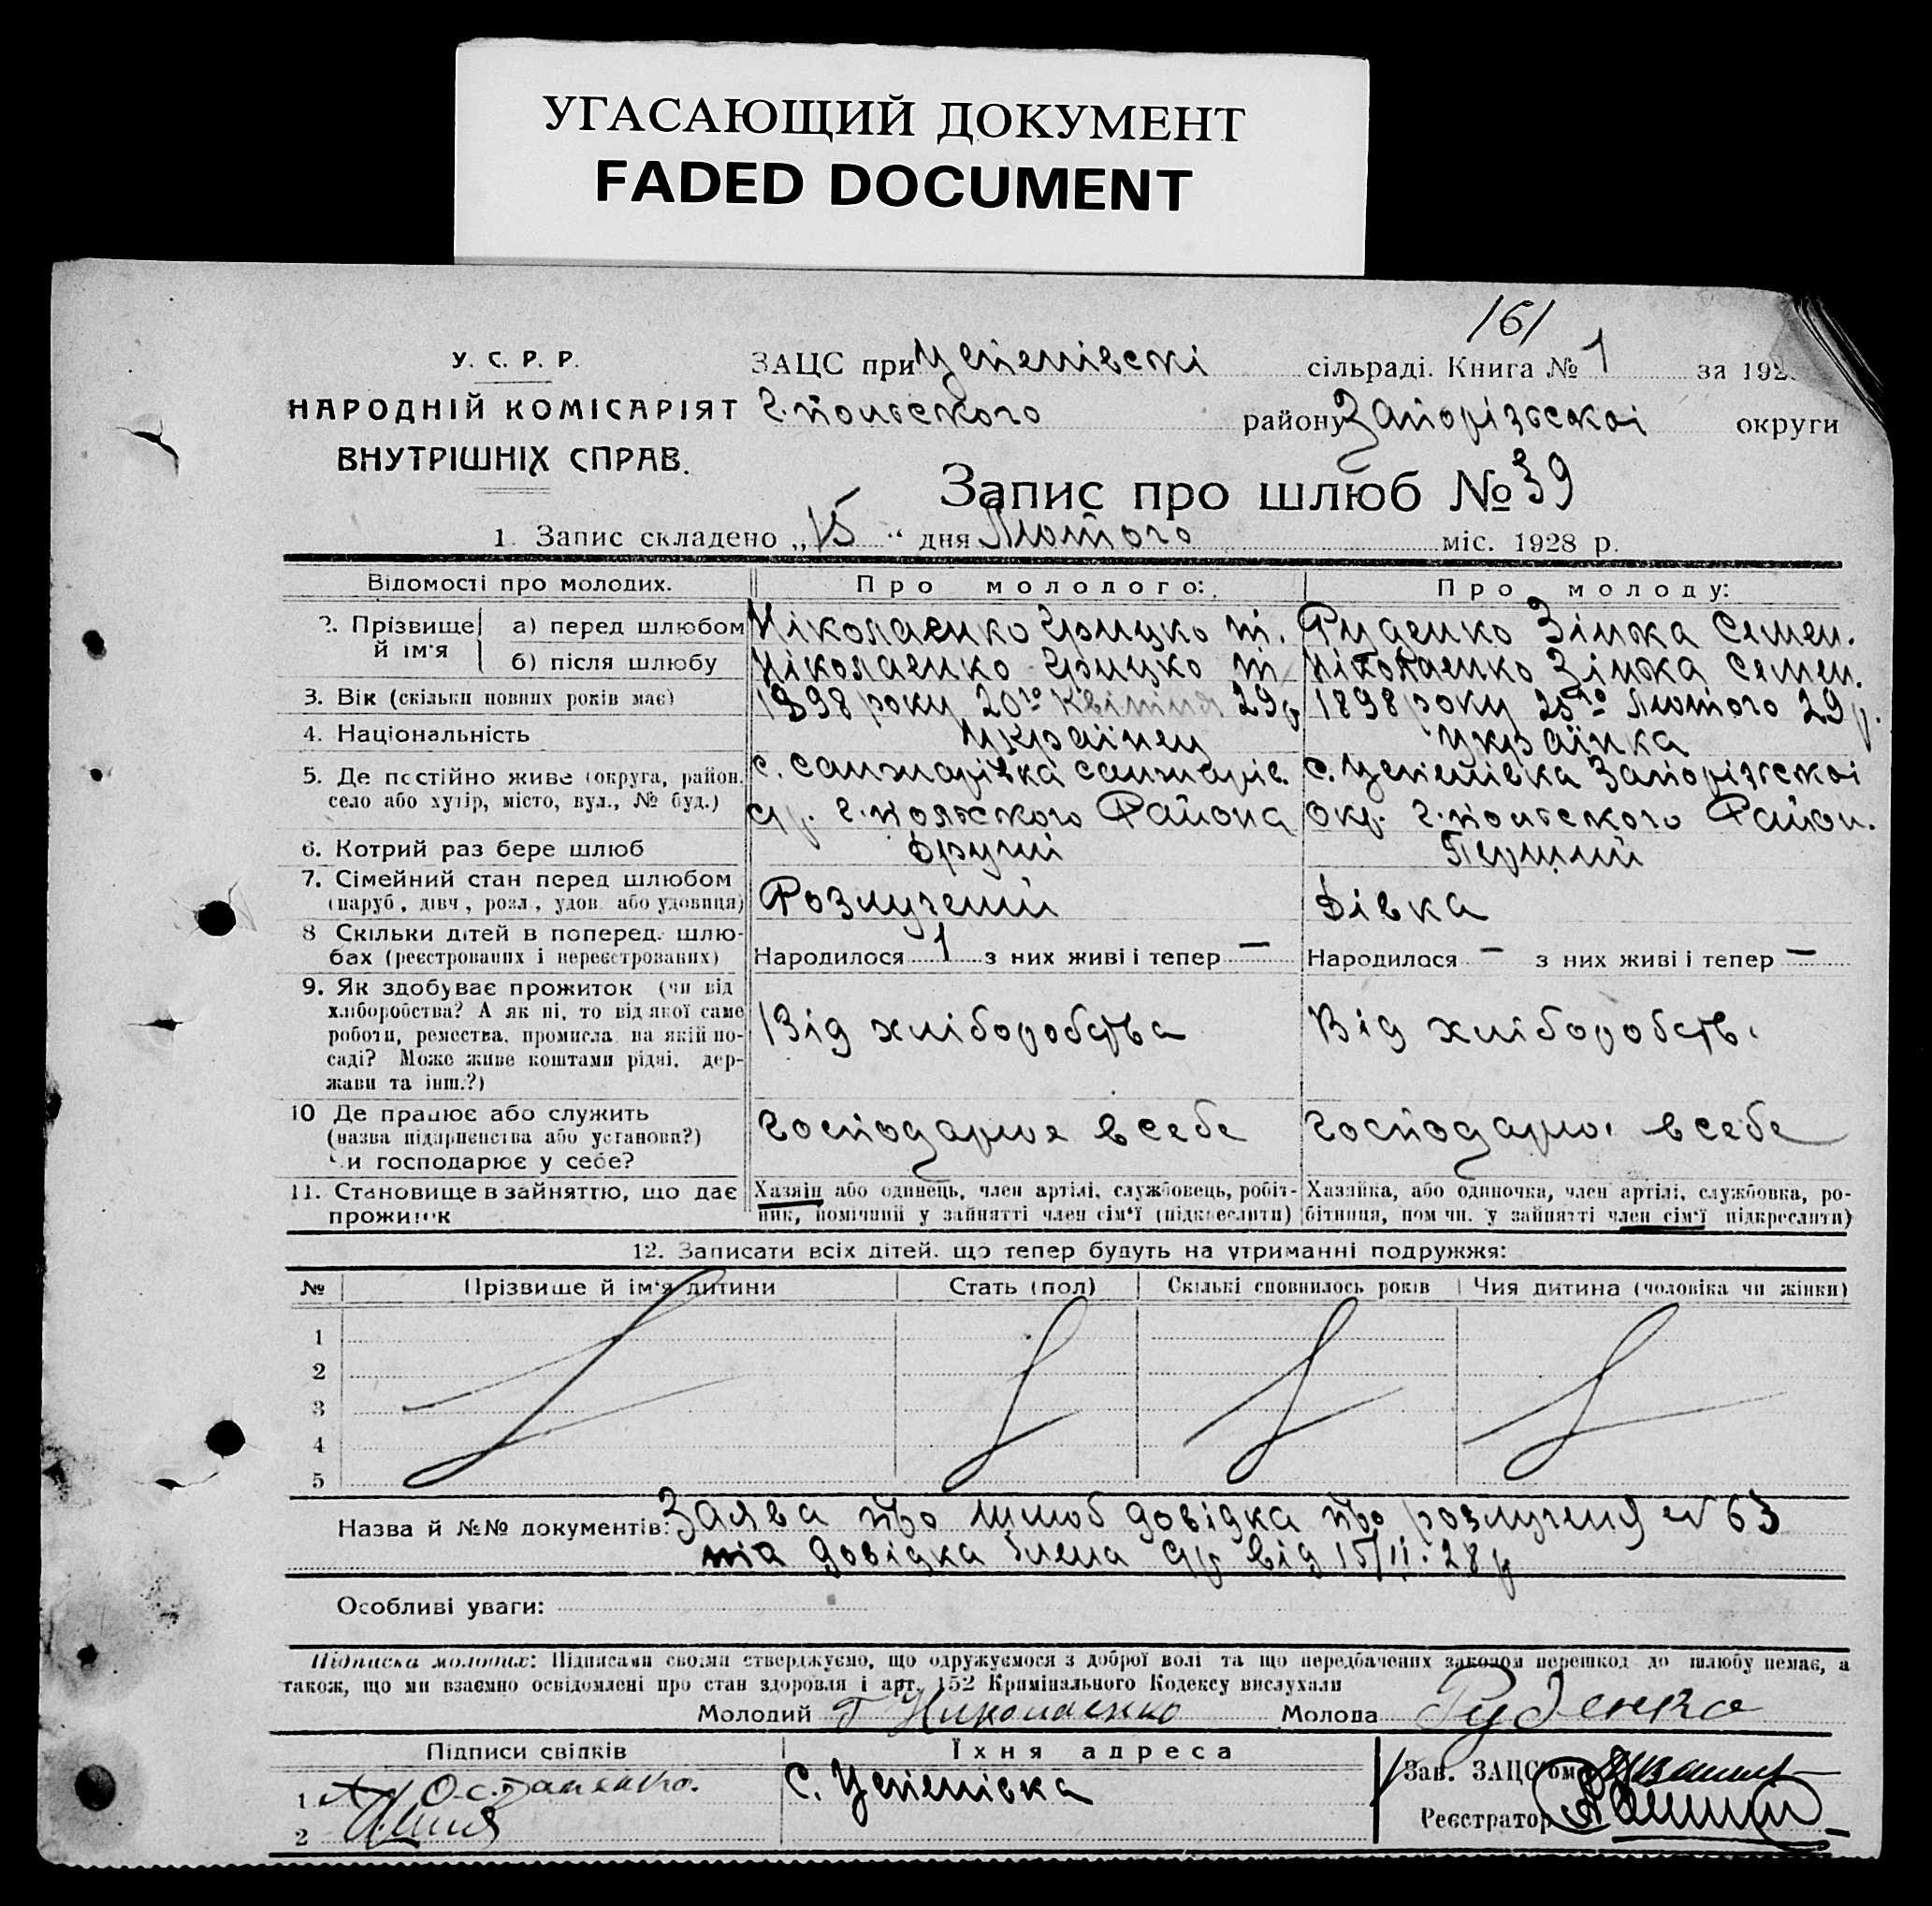 УГАСАЮЩИЙ ДОКУМЕНТ
FADED DOCUMENT
161
У. С. Р. Р.
НАРОДНІЙ КОМІСАРІЯТ
ВНУТРІШНІХ СПРАВ.
ЗАЦС при Успенівскі сільраді. Книга № 1 за 192
Г.польского району Запорізьскоі округи
Запис про шлюб № 39
1. Запис складено „15“ дня Лютого міс. 1928 р.
Відомості про молодих. Про молодого: Про молоду:
2. Прізвище й ім'я а) перед шлюбом Ніколаенко Грицко т. Руденко Зінька Семен.
б) після шлюбу Ніколаенко Грицко т Ніколаенко Зінька Семен.
3. Вік (скільки повних років має) 1898 року 20го Квітня 29р 1898 року 25го Лютого 29р.
4. Національність Украінец Украінка
5. Де постійно живе (округа, район, село або хутір, місто, вул., № буд.) с. Санжарівка Санжарів. с. Успенівка Запорізьскоі
с/р. Г.польского Района Окр. Г.польского Район.
6. Котрий раз бере шлюб Другий Перший
7. Сімейний стан перед шлюбом Розлучений Дівка
(паруб., дівч., розл., удов. або удовиця)
8 Скільки дітей в поперед. шлюбах (реєстрованих і нереєстрованих) Народилося 1 з них живі і тепер — Народилося — з них живі і тепер —
9. Як здобуває прожиток (чи від
хліборобства? А як ні, то від якої саме
роботи, ремества, промисла, на якій по-
саді? Може живе коштами рідні, дер-
жави та інш.?)
Від хліборобства Від хліборобств.
10 Де працює або служить
(назва підприємства або установи?)
Чи господарює у себе?
Господарює в себе Господарю. в себе
11. Становище в зайняттю, що дає прожиток
Хазяін або одинець, член артілі, службовець, робіт-
ник, помічний у зайнятті член сім'ї (підкреслити)
Хазяйка, або одиночка, член артілі, службовка, ро-
бітниця, пом чн. у зайнятті член сім'ї підкреслити)
12. Записати всіх дітей, що тепер будуть на утриманні подружжя:
№ Прізвище й ім'я дитини Стать (пол) Скількі сповнилось років Чия дитина (чоловіка чи жінки)
1
2
3
4
5
Назва й №№ документів: Заява про шлюб довідка про розлученя № 63
та довідка с/р від 15/II.28р
Особливі уваги:
Підписка молодих: Підписами своїми стверджуємо, що одружуємося з доброї волі та що передбачених законом перешкод до шлюбу немає, а
також, що ми взаємно освідомлені про стан здоровля і арт. 152 Кримінального Кодексу вислухали
Молодий Г Николаенко Молода Руденко
Підписи свідків Їхня адреса Зав. ЗАЦС'ом
1 Остапенко. с. Успенівка
2 Реєстратор